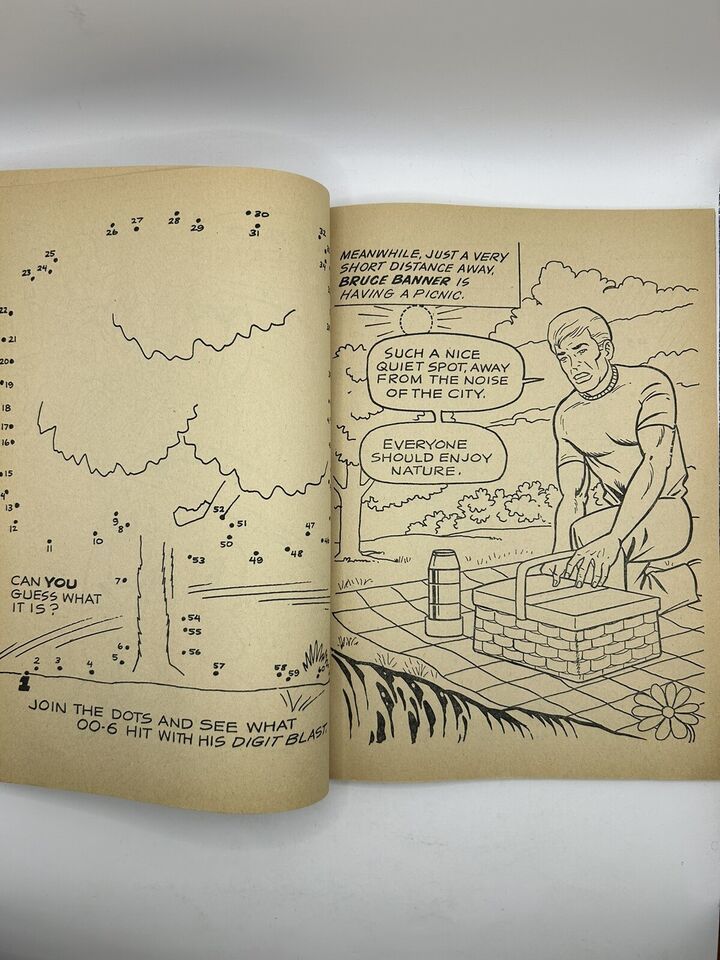 30
28
27
26
29
31
32
25
24
23
34
22
21
20
19
18
17
16
15
13
12
52
9
8
51
47
10
50
11
49
48
53
CAN YOU
GUESS WHAT
IT IS?
7
54
55
6
56
5
2
3
4
57
58
59
1
JOIN THE DOTS AND SEE WHAT
OO-6 HIT WITH HIS DIGIT BLAST.
MEANWHILE, JUST A VERY
SHORT DISTANCE AWAY,
BRUCE BANNER IS
HAVING A PICNIC.
SUCH A NICE
QUIET SPOT, AWAY
FROM THE NOISE
OF THE CITY.
EVERYONE
SHOULD ENJOY
NATURE.